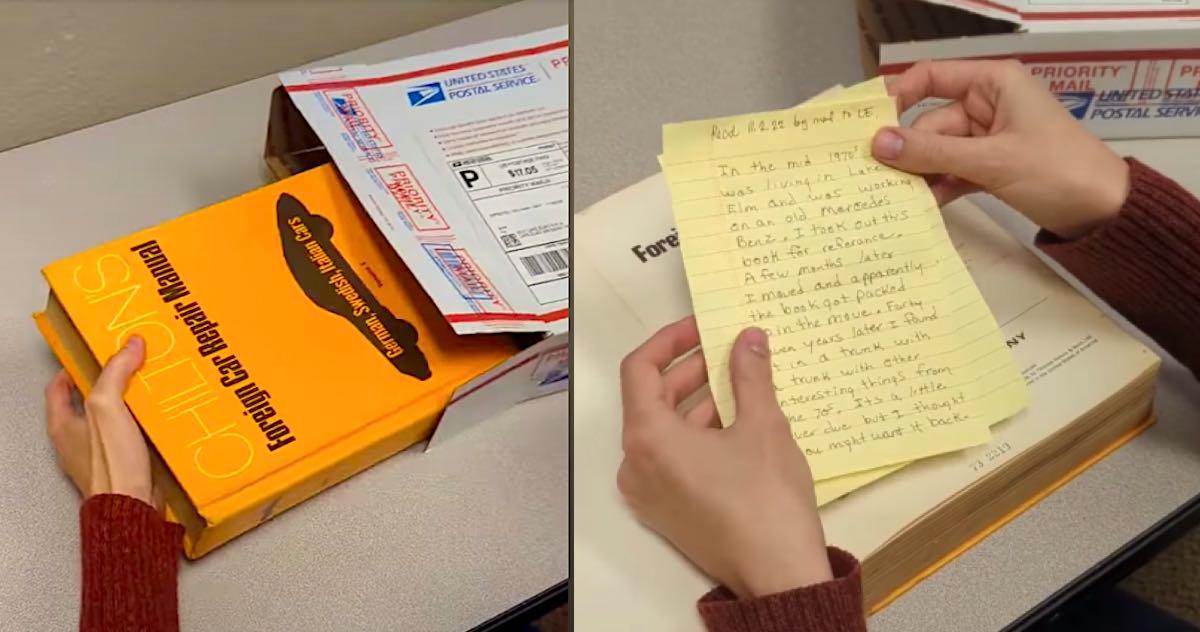 CHILTON'S
Foreign Car Repair Manual
German, Swedish, Italian Cars
UNITED STATES
POSTAL SERVICE
PRIORITY
MAIL
P
$17.05
PRIORITY MAIL
PRIORITY
MAIL
UNITED STATES
POSTAL SERVICE
Recd 11.2.22 by mail to LE.
In the mid 1970's
was living in Lake
Elm and was working
on an old Mercedes
Benz. I took out this
book for referance.
A few months later
I moved and apparently
the book got packed
in the move. Forty
ven years later I found
t in a trunk with
trunk with other
nteresting things from
he 70s. Its a little
ver due but I thought
ou might want it back.
Forei
NY
73 2213